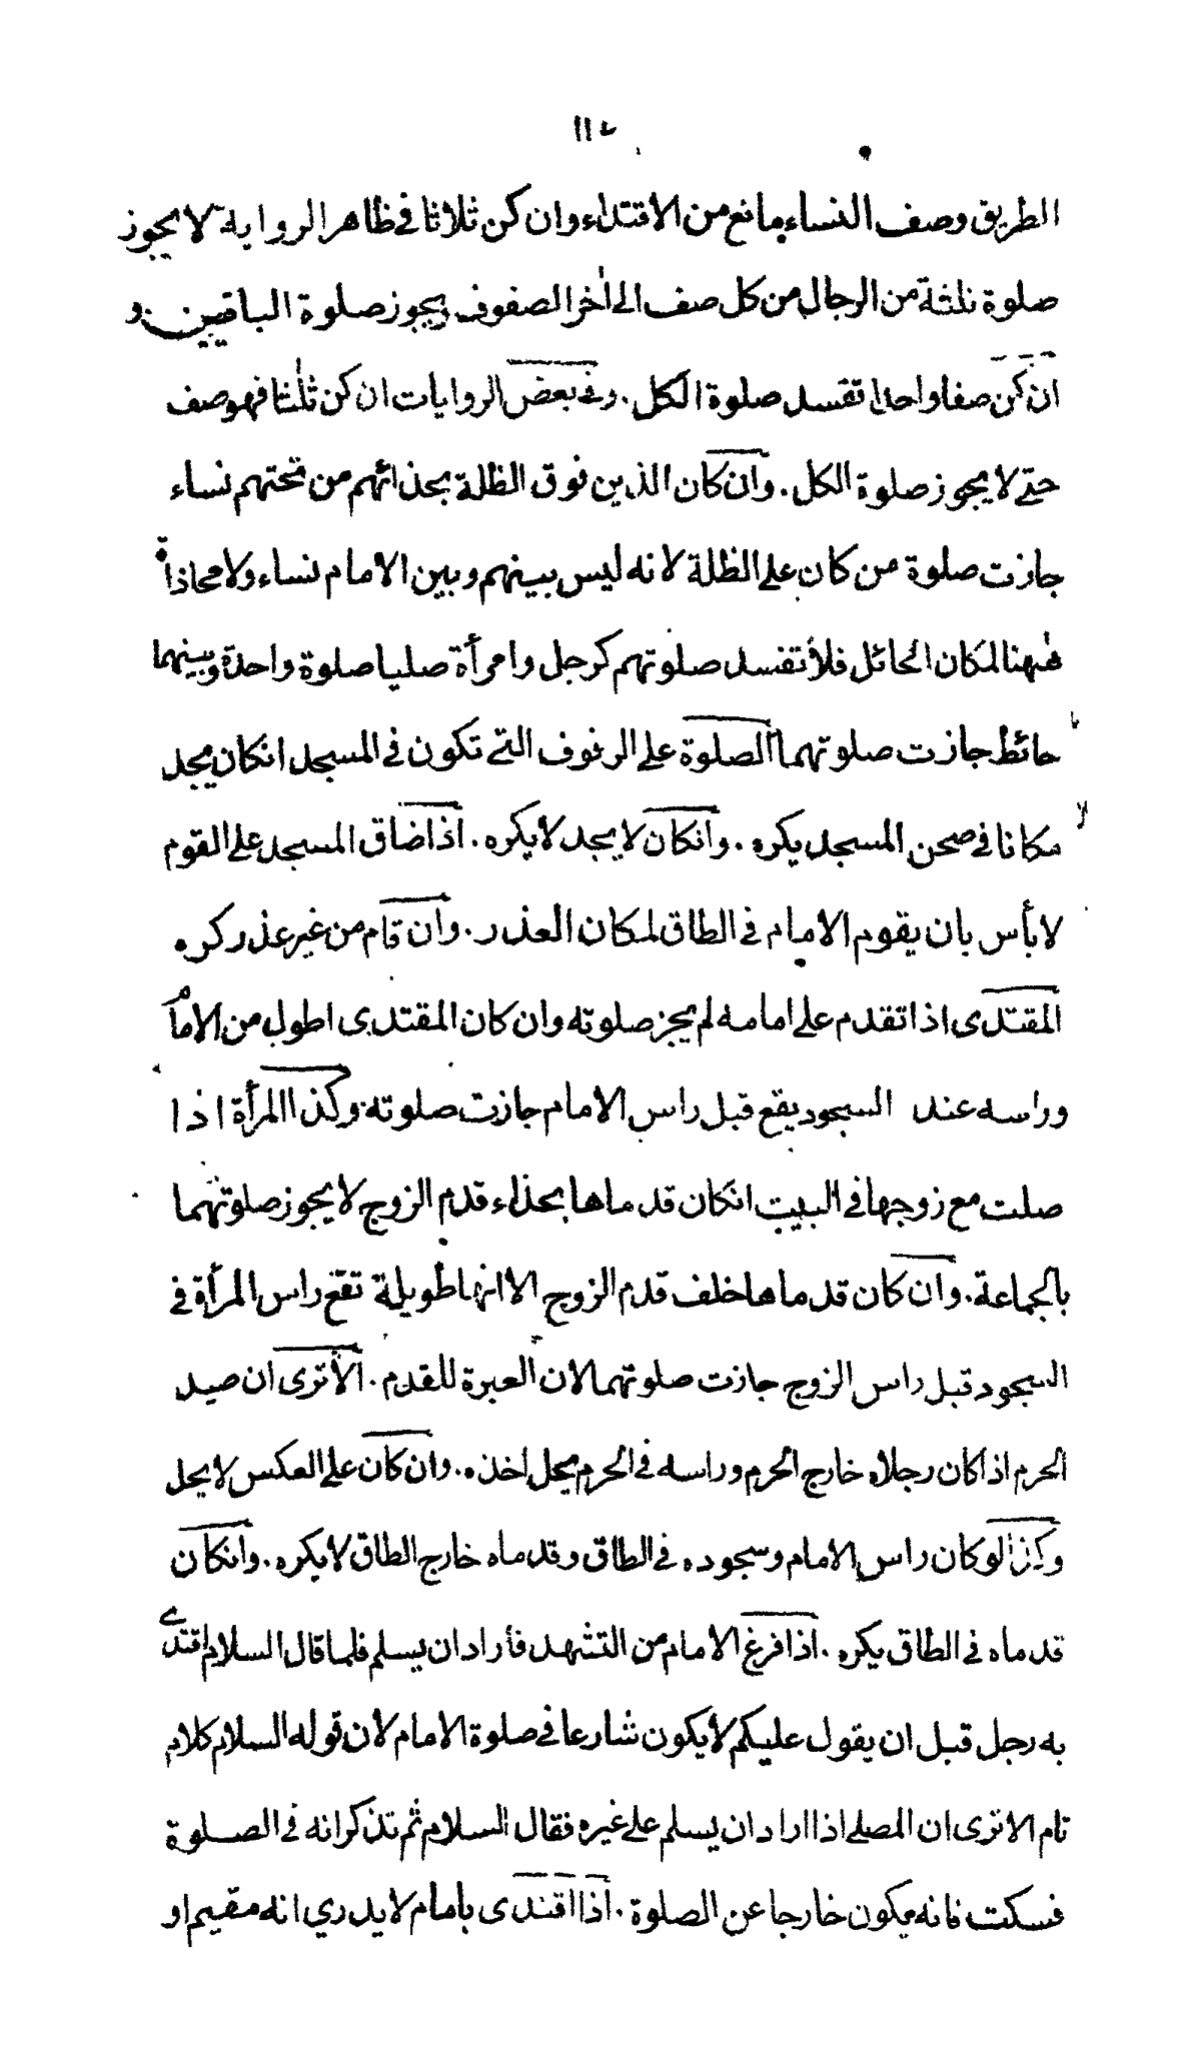 ١١٤
الطريق وصف النساء مانع من الاقتداء وان كن ثلاثا فى ظاهر الرواية لا يجوز
صلوة ثلثة من الرجال من كل صف الى اٰخر الصفوف ويجوز صلوة الباقيين و
ان كن صفا واحدا تفسد صلوة الكل. وفى بعض الروايات ان كن ثلٰثا فهو صف
حتى لا يجوز صلوة الكل. وان كان الذين فوق الظلة بحذائهم من تحتهم نساء
جازت صلوة من كان على الظلة لانه ليس بينهم وبين الامام نساء ولا محاذاة
هٰهنا لمكان الحائل فلا تفسد صلوتهم كرجل وامرأة صليا صلوة واحدة وبينهما
حائط جازت صلوتهما الصلوة على الرفوف التى تكون فى المسجد انكان يجد
مكانا فى صحن المسجد يكره. وانكان لا يجد لا يكره. اذا ضاق المسجد على القوم
لا بأس بان يقوم الامام فى الطاق لمكان العذر. وان قام من غير عذر كره
المقتدى اذا تقدم على امامه لم يجز صلوته وان كان المقتدى اطول من الامام
وراسه عند السجود يقع قبل راس الامام جازت صلوته وكذا المرأة اذا
صلت مع زوجها فى البيت انكان قدماها بحذاء قدم الزوج لا يجوز صلوتهما
بالجماعة. وان كان قدماها خلف قدم الزوج الا انها طويلة تقع راس المرأة فى
السجود قبل راس الزوج جازت صلوتهما لان العبرة للقدم. الا ترى ان صيد
الحرم اذا كان رجلاه خارج الحرم وراسه فى الحرم يحل اخذه. وان كان على العكس لا يحل
وكذا لو كان راس الامام وسجوده فى الطاق وقدماه خارج الطاق لا يكره. وانكان
قدماه فى الطاق يكره. اذا فرغ الامام من التشهد فأراد ان يسلم فلما قال السلام اقتدى
به رجل قبل ان يقول عليكم لا يكون شارعا فى صلوة الامام لان قوله السلام كلام
تام الا ترى ان المصلى اذا اراد ان يسلم على غيره فقال السلام ثم تذكر انه فى الصلوة
فسكت فانه يكون خارجا عن الصلوة. اذا اقتدى بامام لا يدري انه مقيم او